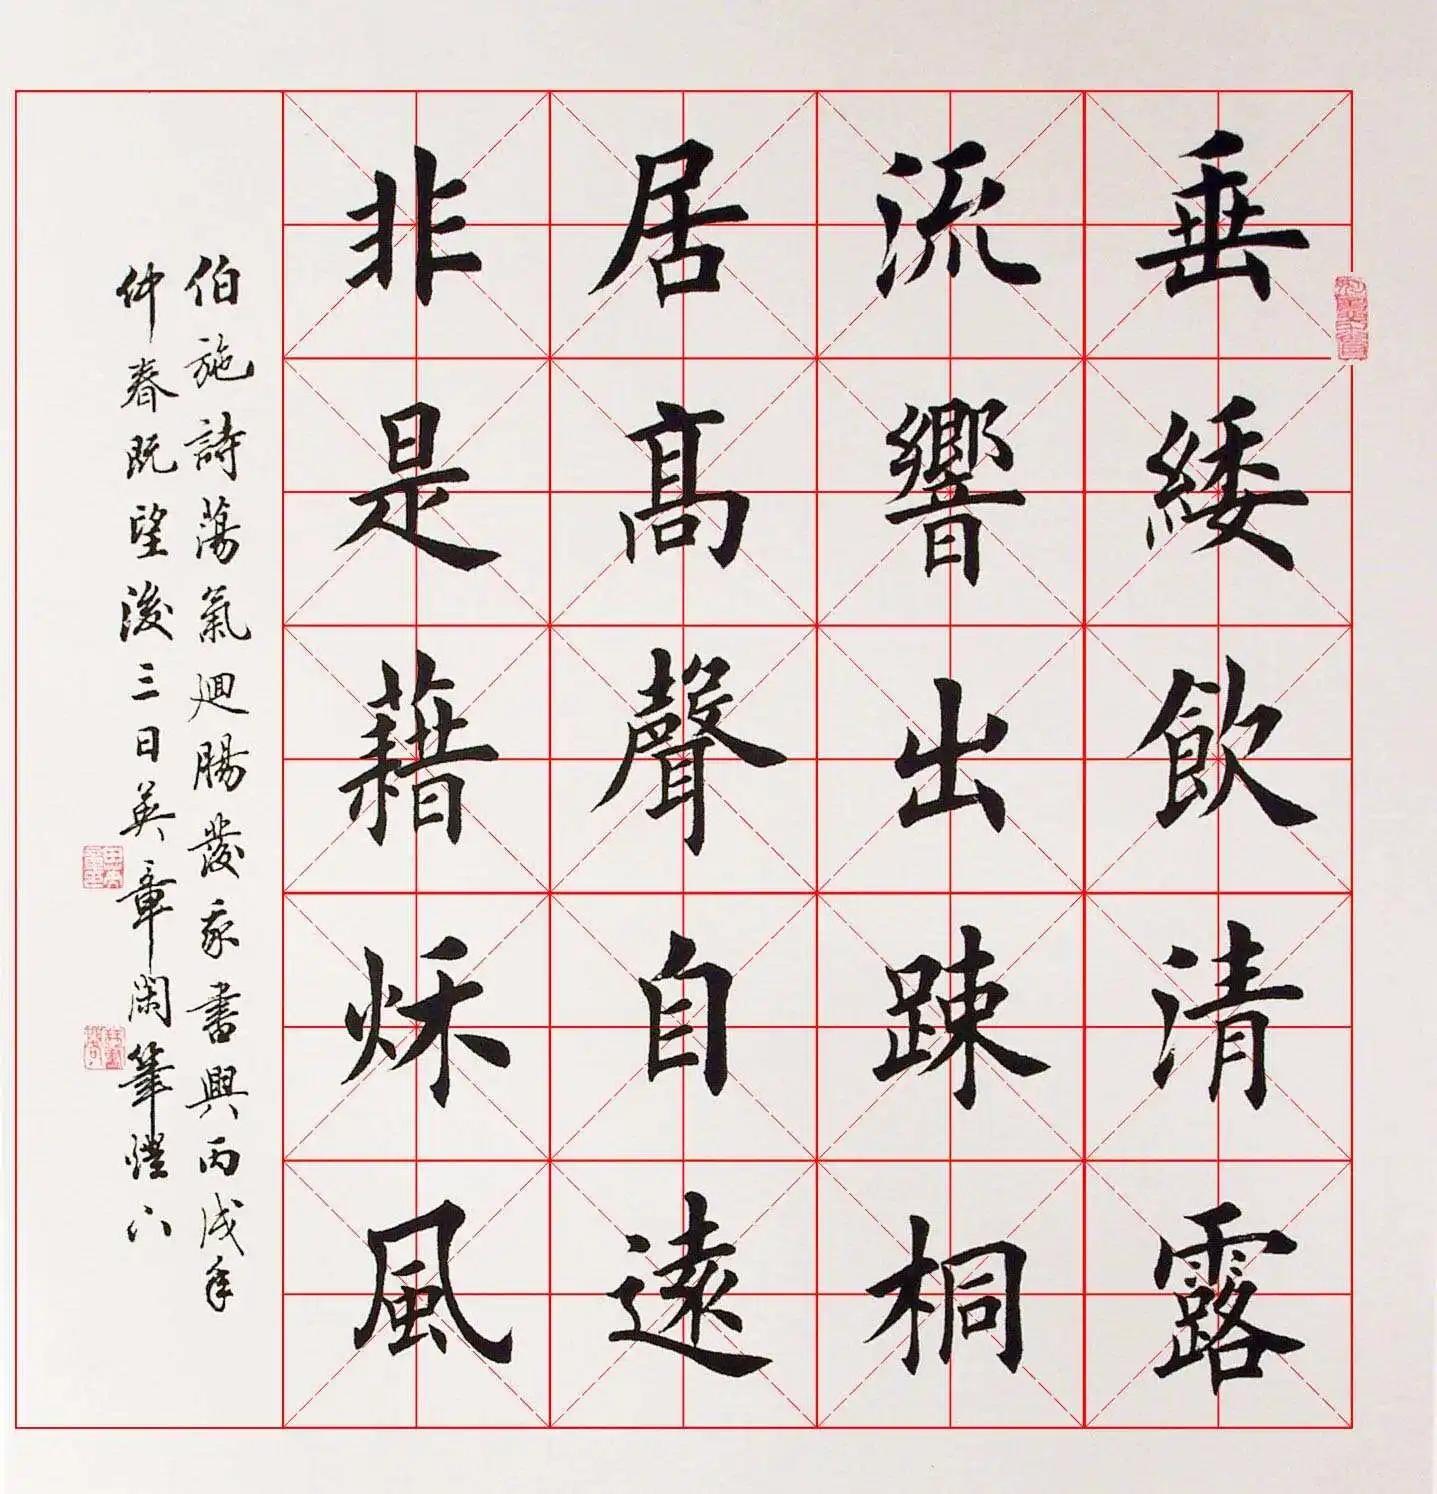 垂緌飲清露
流響出踈桐
居高聲自遠
非是藉秌風
伯施詩蕩氣迴腸發我書興丙戌年
仲春既望後三日英章閑筆